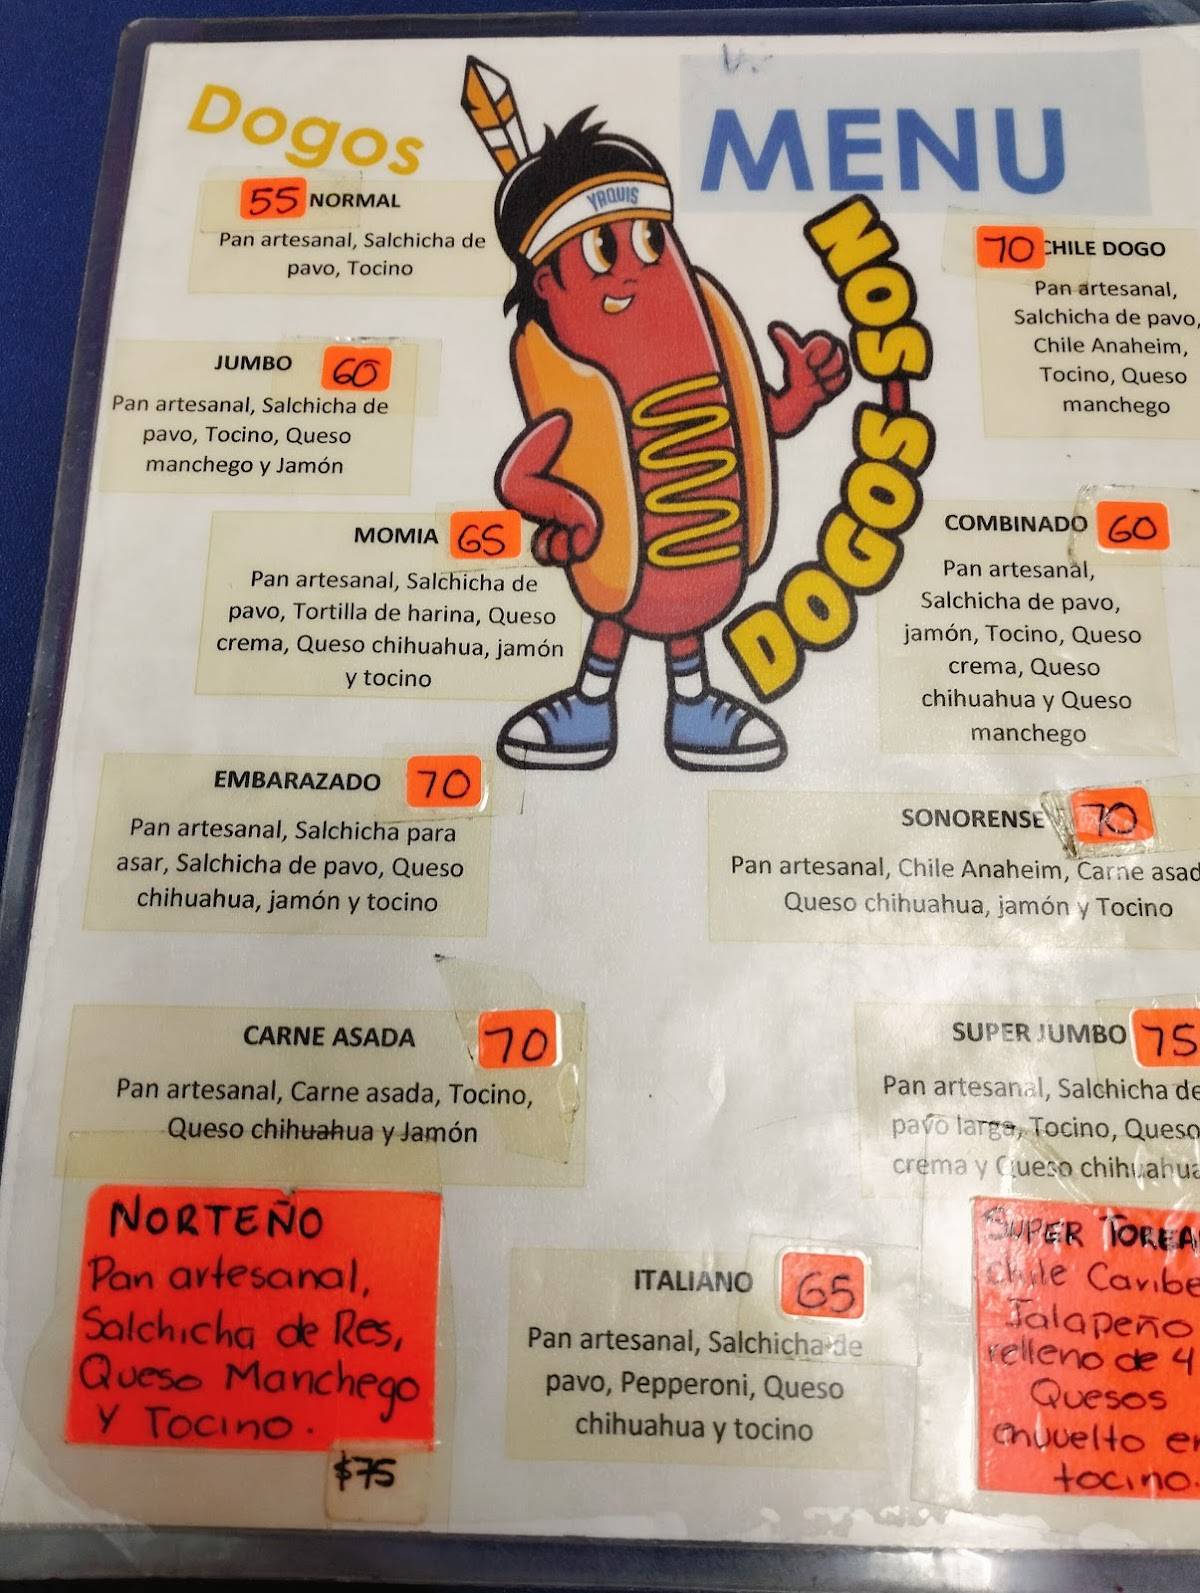 Dogos
MENU
55 NORMAL
Pan artesanal, Salchicha de
pavo, Tocino
JUMBO 60
Pan artesanal, Salchicha de
pavo, Tocino, Queso
manchego y Jamón
MOMIA 65
Pan artesanal, Salchicha de
pavo, Tortilla de harina, Queso
crema, Queso chihuahua, jamón
y tocino
EMBARAZADO 70
Pan artesanal, Salchicha para
asar, Salchicha de pavo, Queso
chihuahua, jamón y tocino
CARNE ASADA 70
Pan artesanal, Carne asada, Tocino,
Queso chihuahua y Jamón
NORTEÑO
Pan artesanal,
Salchicha de Res,
Queso Manchego
Y TOCINO.
$75
YAQUIS
DOGOS-SON
70 CHILE DOGO
Pan artesanal,
Salchicha de pavo,
Chile Anaheim,
Tocino, Queso
manchego
COMBINADO 60
Pan artesanal,
Salchicha de pavo,
jamón, Tocino, Queso
crema, Queso
chihuahua y Queso
manchego
SONORENSE 70
Pan artesanal, Chile Anaheim, Carne asad
Queso chihuahua, jamón y Tocino
SUPER JUMBO 75
Pan artesanal, Salchicha de
pavo larga, Tocino, Queso
crema y Queso chihuahua
ITALIANO 65
Pan artesanal, Salchicha de
pavo, Pepperoni, Queso
chihuahua y tocino
SUPER TOREA
Chile Caribe
Jalapeño
relleno de 4
Quesos
envuelto en
tocino.